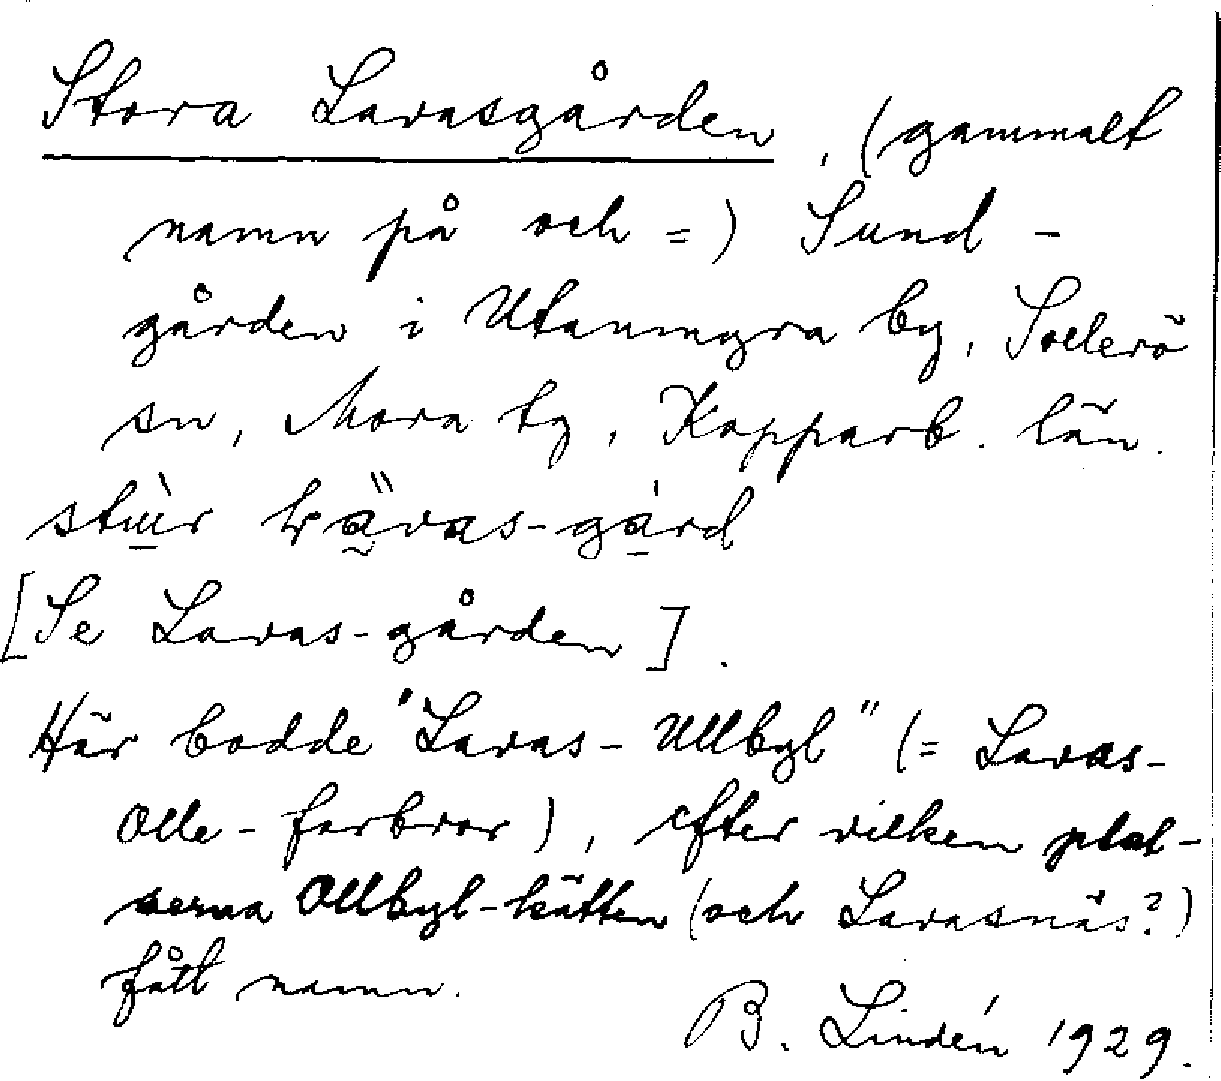 Stora Lavasgården, (gammalt
namn på och =) Sund-
gården i Utanmyra by, Sollerö
sn, Mora tg, Kopparb. län.
Lävas-gård
[Se Lavas-gården].
Här bodde "Lavas-Ullbyl" (= Lavas-
Olle-farbror), efter vilken plat-
serna Ollbyl-kätten (och Lavasnäs?)
fått namn.
B. Lindén 1929.